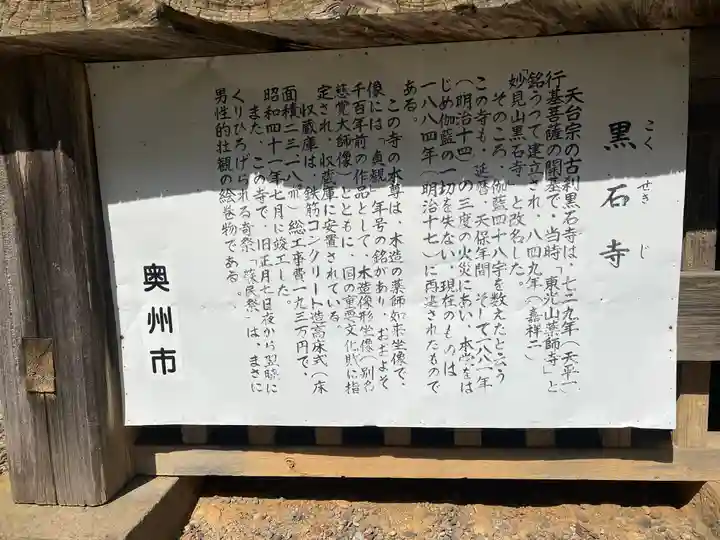 こくせきじ
黒石寺
天台宗の古刹黒石寺は、七二九年(天平一)
行基菩薩の開基で、当時「東光山薬師寺」と
銘うって建立され、八四九年(嘉祥二)
「妙見山黒石寺」と改名した。
そのころ、伽藍四十八宇を数えたという
この寺も、延暦、天保年間、そして一八八一年
(明治十四)の三度の火災にあい、本堂をは
じめ伽藍の一切を失ない、現在のものは
一八八四年(明治十七)に再建されたもので
ある。
この寺の本尊は、木造の薬師如来坐像で、
像には「貞観」年号の銘があり、およそ
千百年前の作品として、木造僧形坐像(別名
慈覚大師像)とともに、国の重要文化財に指
定され、収蔵庫に安置されている。
収蔵庫は、鉄筋コンクリート造高床式(床
面積二三一八㎡)総工事費一九三万円で、
昭和四十一年七月に竣工した。
また、この寺で、旧正月七日夜から翌暁に
くりひろげられる奇祭「蘇民祭」は、まさに
男性的壮観の絵巻物である。
奥州市